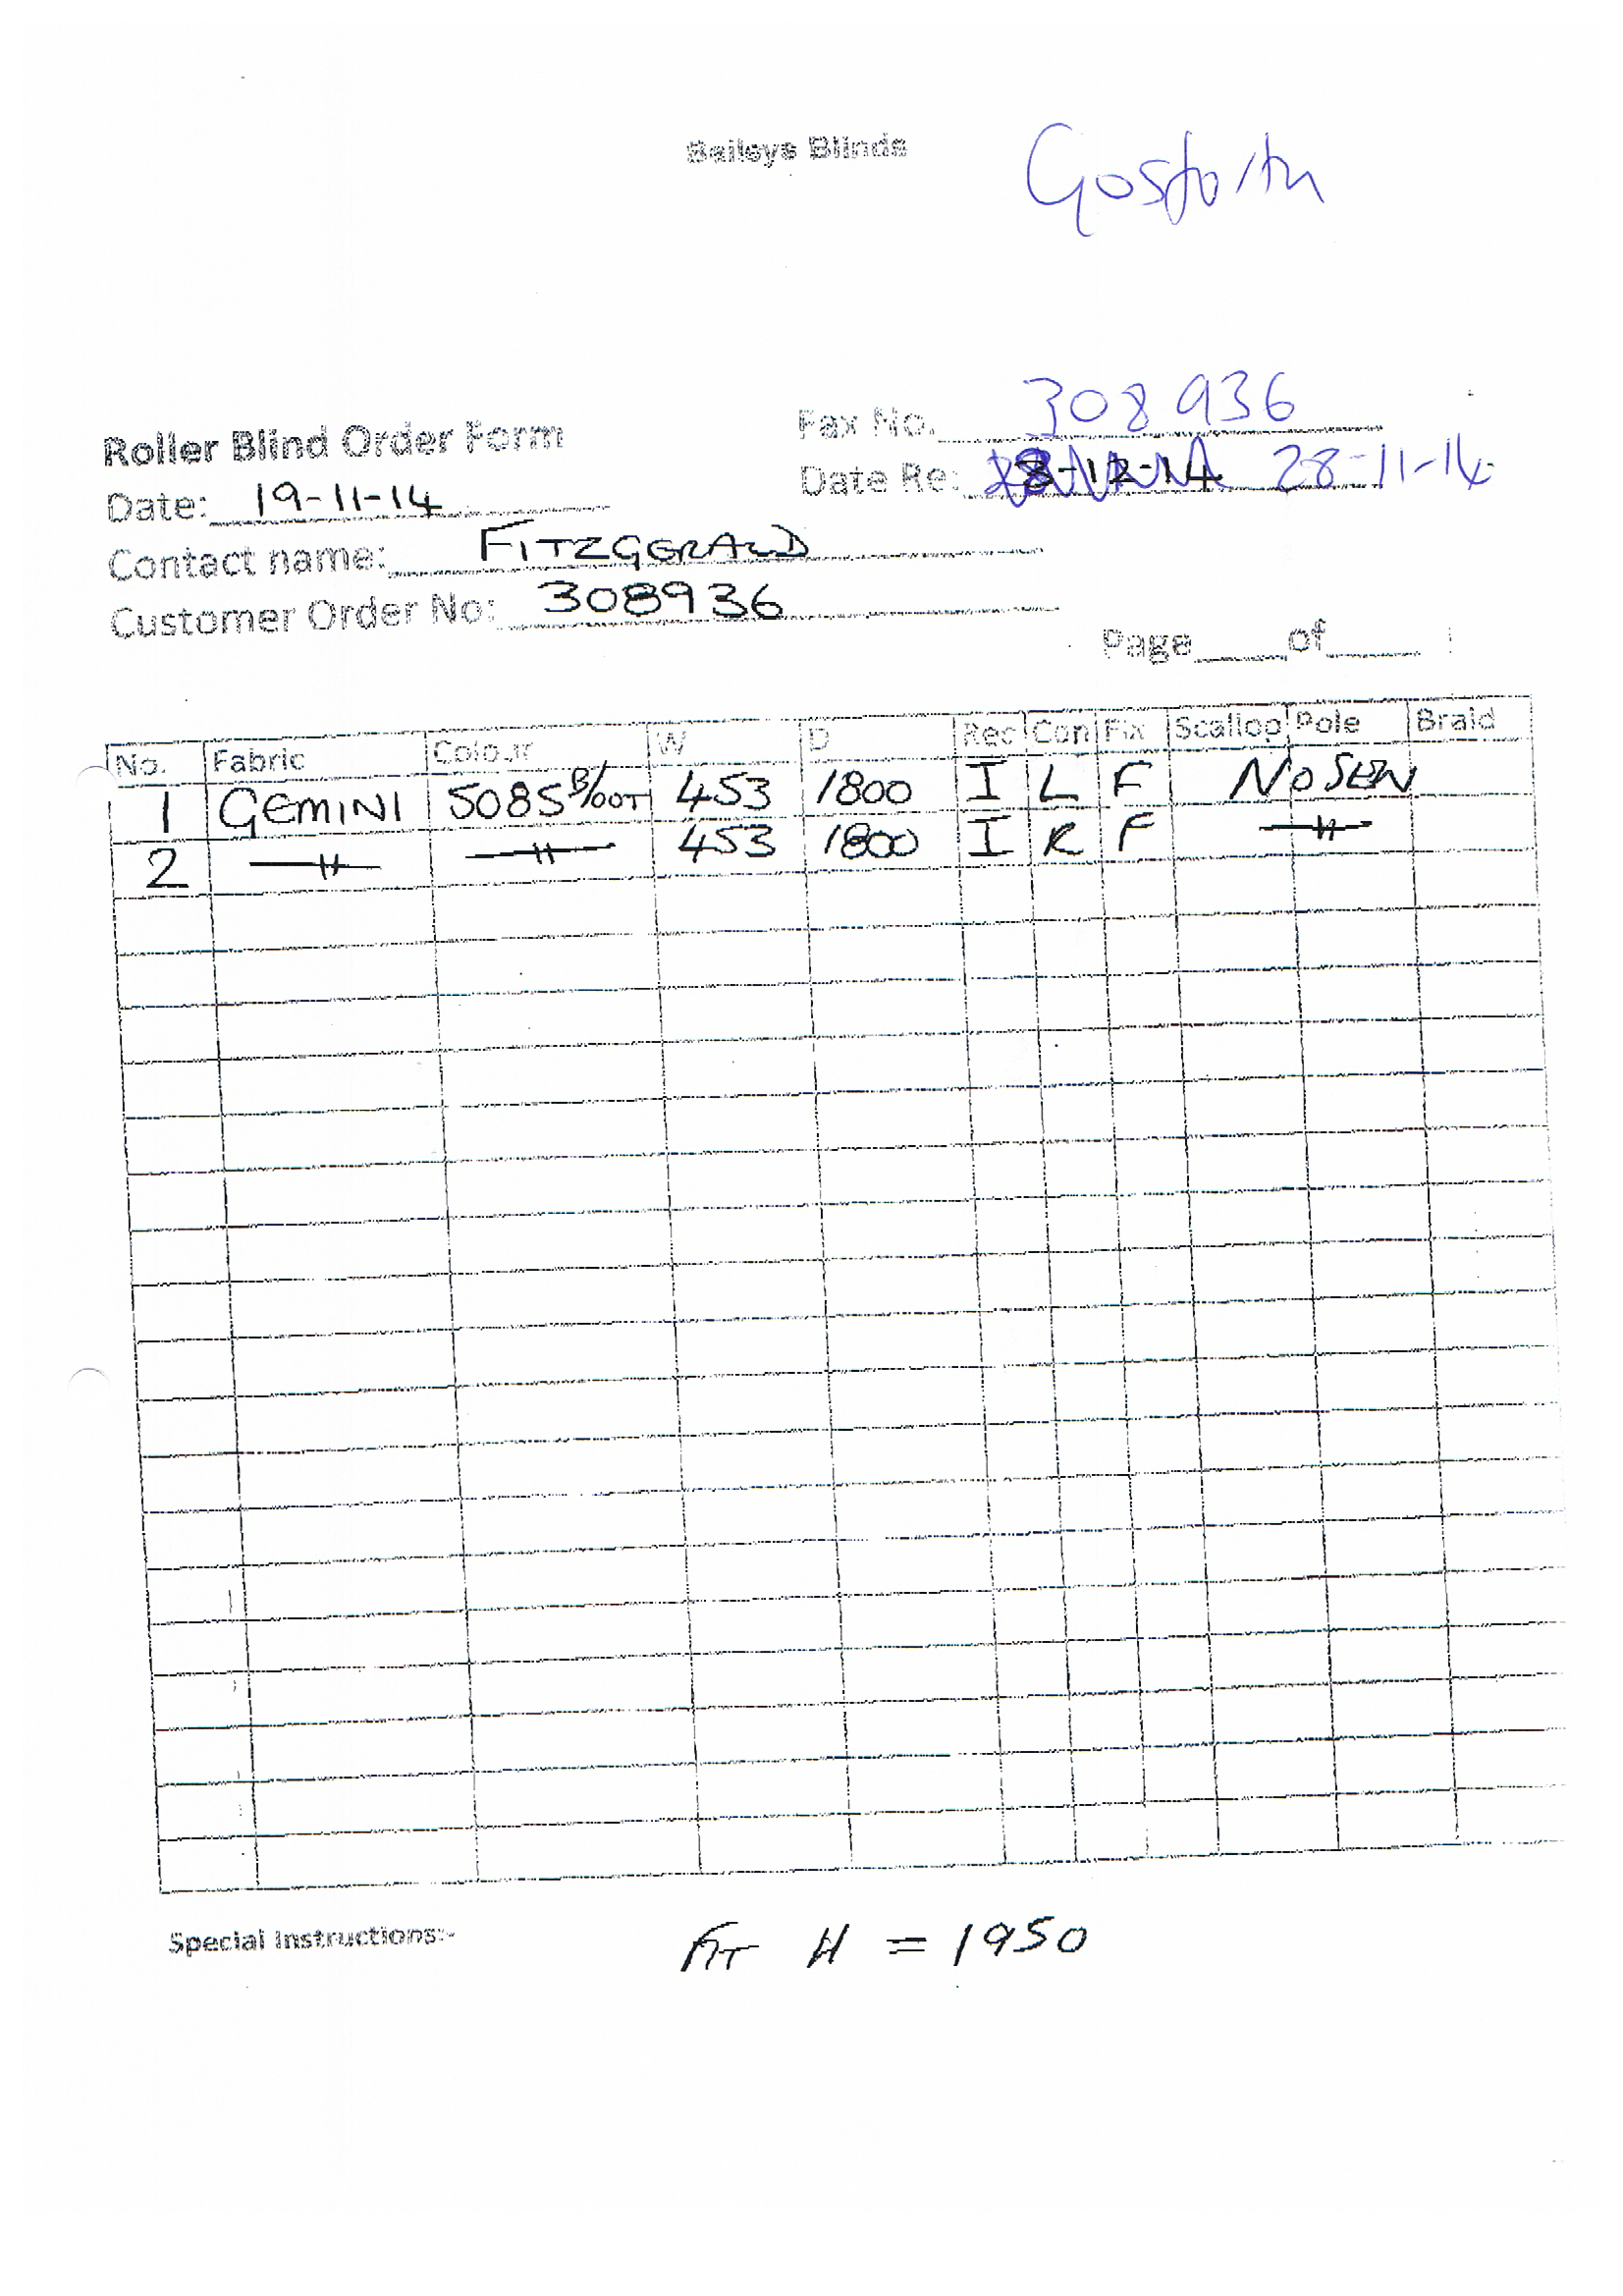 Baileys Blinds
Gosforth
Roller Blind Order Form
Fax No. 308936
Date: 19-11-14
Date Re: 3-12-14 28-11-14
Contact name: FITZGERALD
Customer Order No: 308936
Page of
No. Fabric Colour W D Rec Con Fix Scallop Pole Braid
1 GEMINI 5085 B/OUT 453 1800 I L F NO SEW
2 —"— —"— 453 1800 I R F —"—
Special Instructions:-
FIT H = 1950